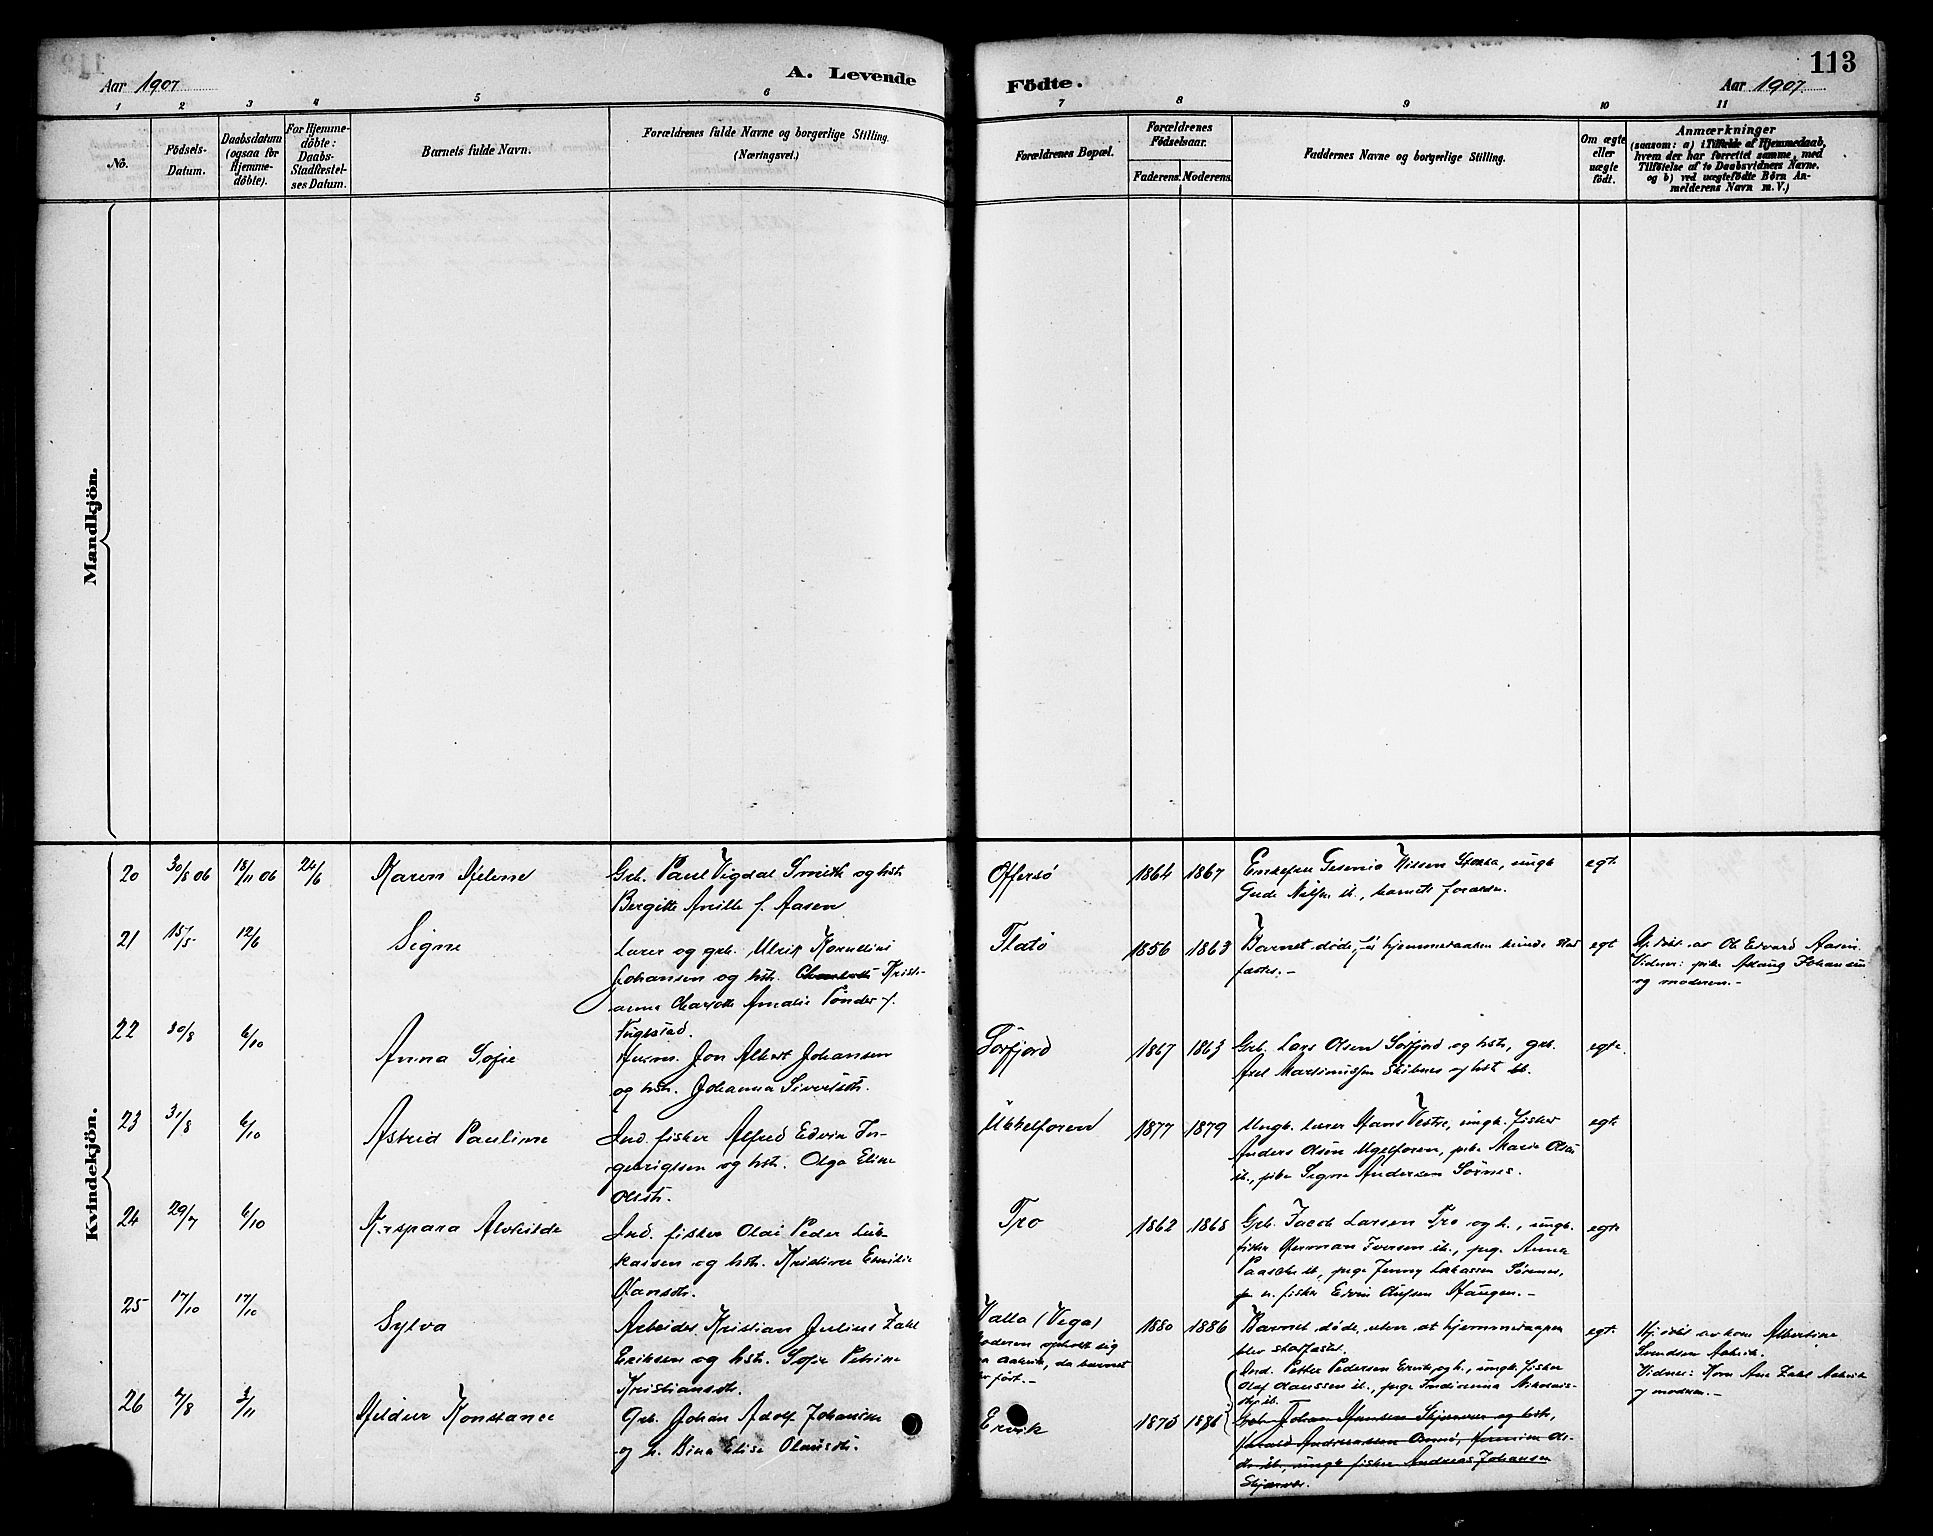 Aar 1907
A. Levende
Födte.
Aar 1907
113
1 2 3 4 5 6 7 8 9 10 11
No.
Fødsels-
Datum.
Daabsdatum
(ogsaa for
Hjemme-
döbte).
For Hjemme-
döbte:
Daabs-
Stadfæstel-
ses Datum.
Barnets fulde Navn.
Forældrenes fulde Navne og borgerlige Stilling.
(Næringsvei.)
Forældrenes Bopæl.
Forældrenes
Fødselsaar.
Faderens. Moderens.
Faddernes Navne og borgerlige Stilling.
Om ægte
eller
uægte
födt.
Anmærkninger
(saasom: a) i Tilfælde af Hjemmedaab,
hvem der har forrettet samme, med
Tilføielse af to Daabsvidners Navne.
og b) ved uægtefödte Börn An-
melderens Navn m. V.)
Mandkjön.
Kvindekjön.
20 30/8 06 18/11 06 24/6
Karen Helene
Grb. Paul Vigdal Smith og hst.
Bergitte f. Aasen
Offersö
1864 1867
Nilsen ungk.
ib., barnets forældre.
egt.
21 15/5 12/6
Signe
Lærer og grb. Ulrik Kornelius
Johansen og hst. Kristi-
anna Charlotte Amalie Tönder f.
Flatö
1856 1863
Barnet döde, för hjemmedaaben kunde stad
fæstes.-
egt
Hj. döbt av Ol. Edvard Aasen.
Vidner: pike Johansen
og moderen.-
22 30/8 6/10
Anna Sofie
Jon Albert Johansen
og hst. Johanna Sivertsdt.
Sörfjord
1867 1863
Grb. Lars Olsen Sörfjord og hst., grb.
Axel Martinussen og hst ib.
egte.
23 31/8 6/10
Astrid Pauline
Ind. fisker Alfred Edvin In-
gebrigtsen og hst. Olga Eline
Olsdt.
1877 1879
Ungk. lærer Hans Vestre, ungk. fisker
Anders Olsen pike Marie Olsen
ib., pike Signe Andersen Sörnes.
egt.
24 29/7 6/10
Alvhilde
Ind. fisker Olai Peder
og hst. Kristine Emilie
Hansdt.
Tro
1862 1868
Grb. Jacob Larsen Tro og h., ungk.
fisker Herman Iversen ib., pige Anna
ib., pige Jenny Sörenes,
fisker Edvin Olufsen Haugen.-
egte
25 17/10 17/10
Sylva
Arbeider Kristian Julius Zahl
Eriksen og hst. Sofie Petrine
Kristiansdt.
Valla (Vega)
Moderen opholdt sig
da barnet
födt.-
1880 1886
Barnet döde, uten at hjemmedaapen
blev stadfæstet.
egt.
Hj. döbt av kone Albertine
Svendsen
Vidner: Kone Ane Zahl
og moderen.-
26 3/11
Konstance
Grb. Johan Adolf Johansen
og h. Bina Elise Olausdt.
Ervik
1875
Ind. Petter Pedersen Ervik og h., ungk. fisker
Olaf Olaussen ib., pige
Grb. Johan Hansen og hst.,
ib., ungk. fisker Andreas Johansen